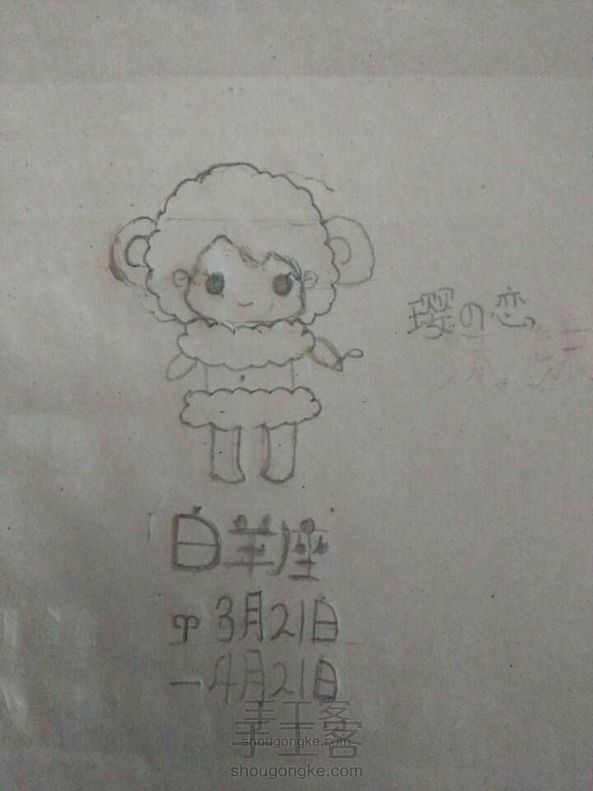 璎の恋
白羊座
♈3月21日
—4月21日
手工客
手工客
shougongke.com
shougongke.com